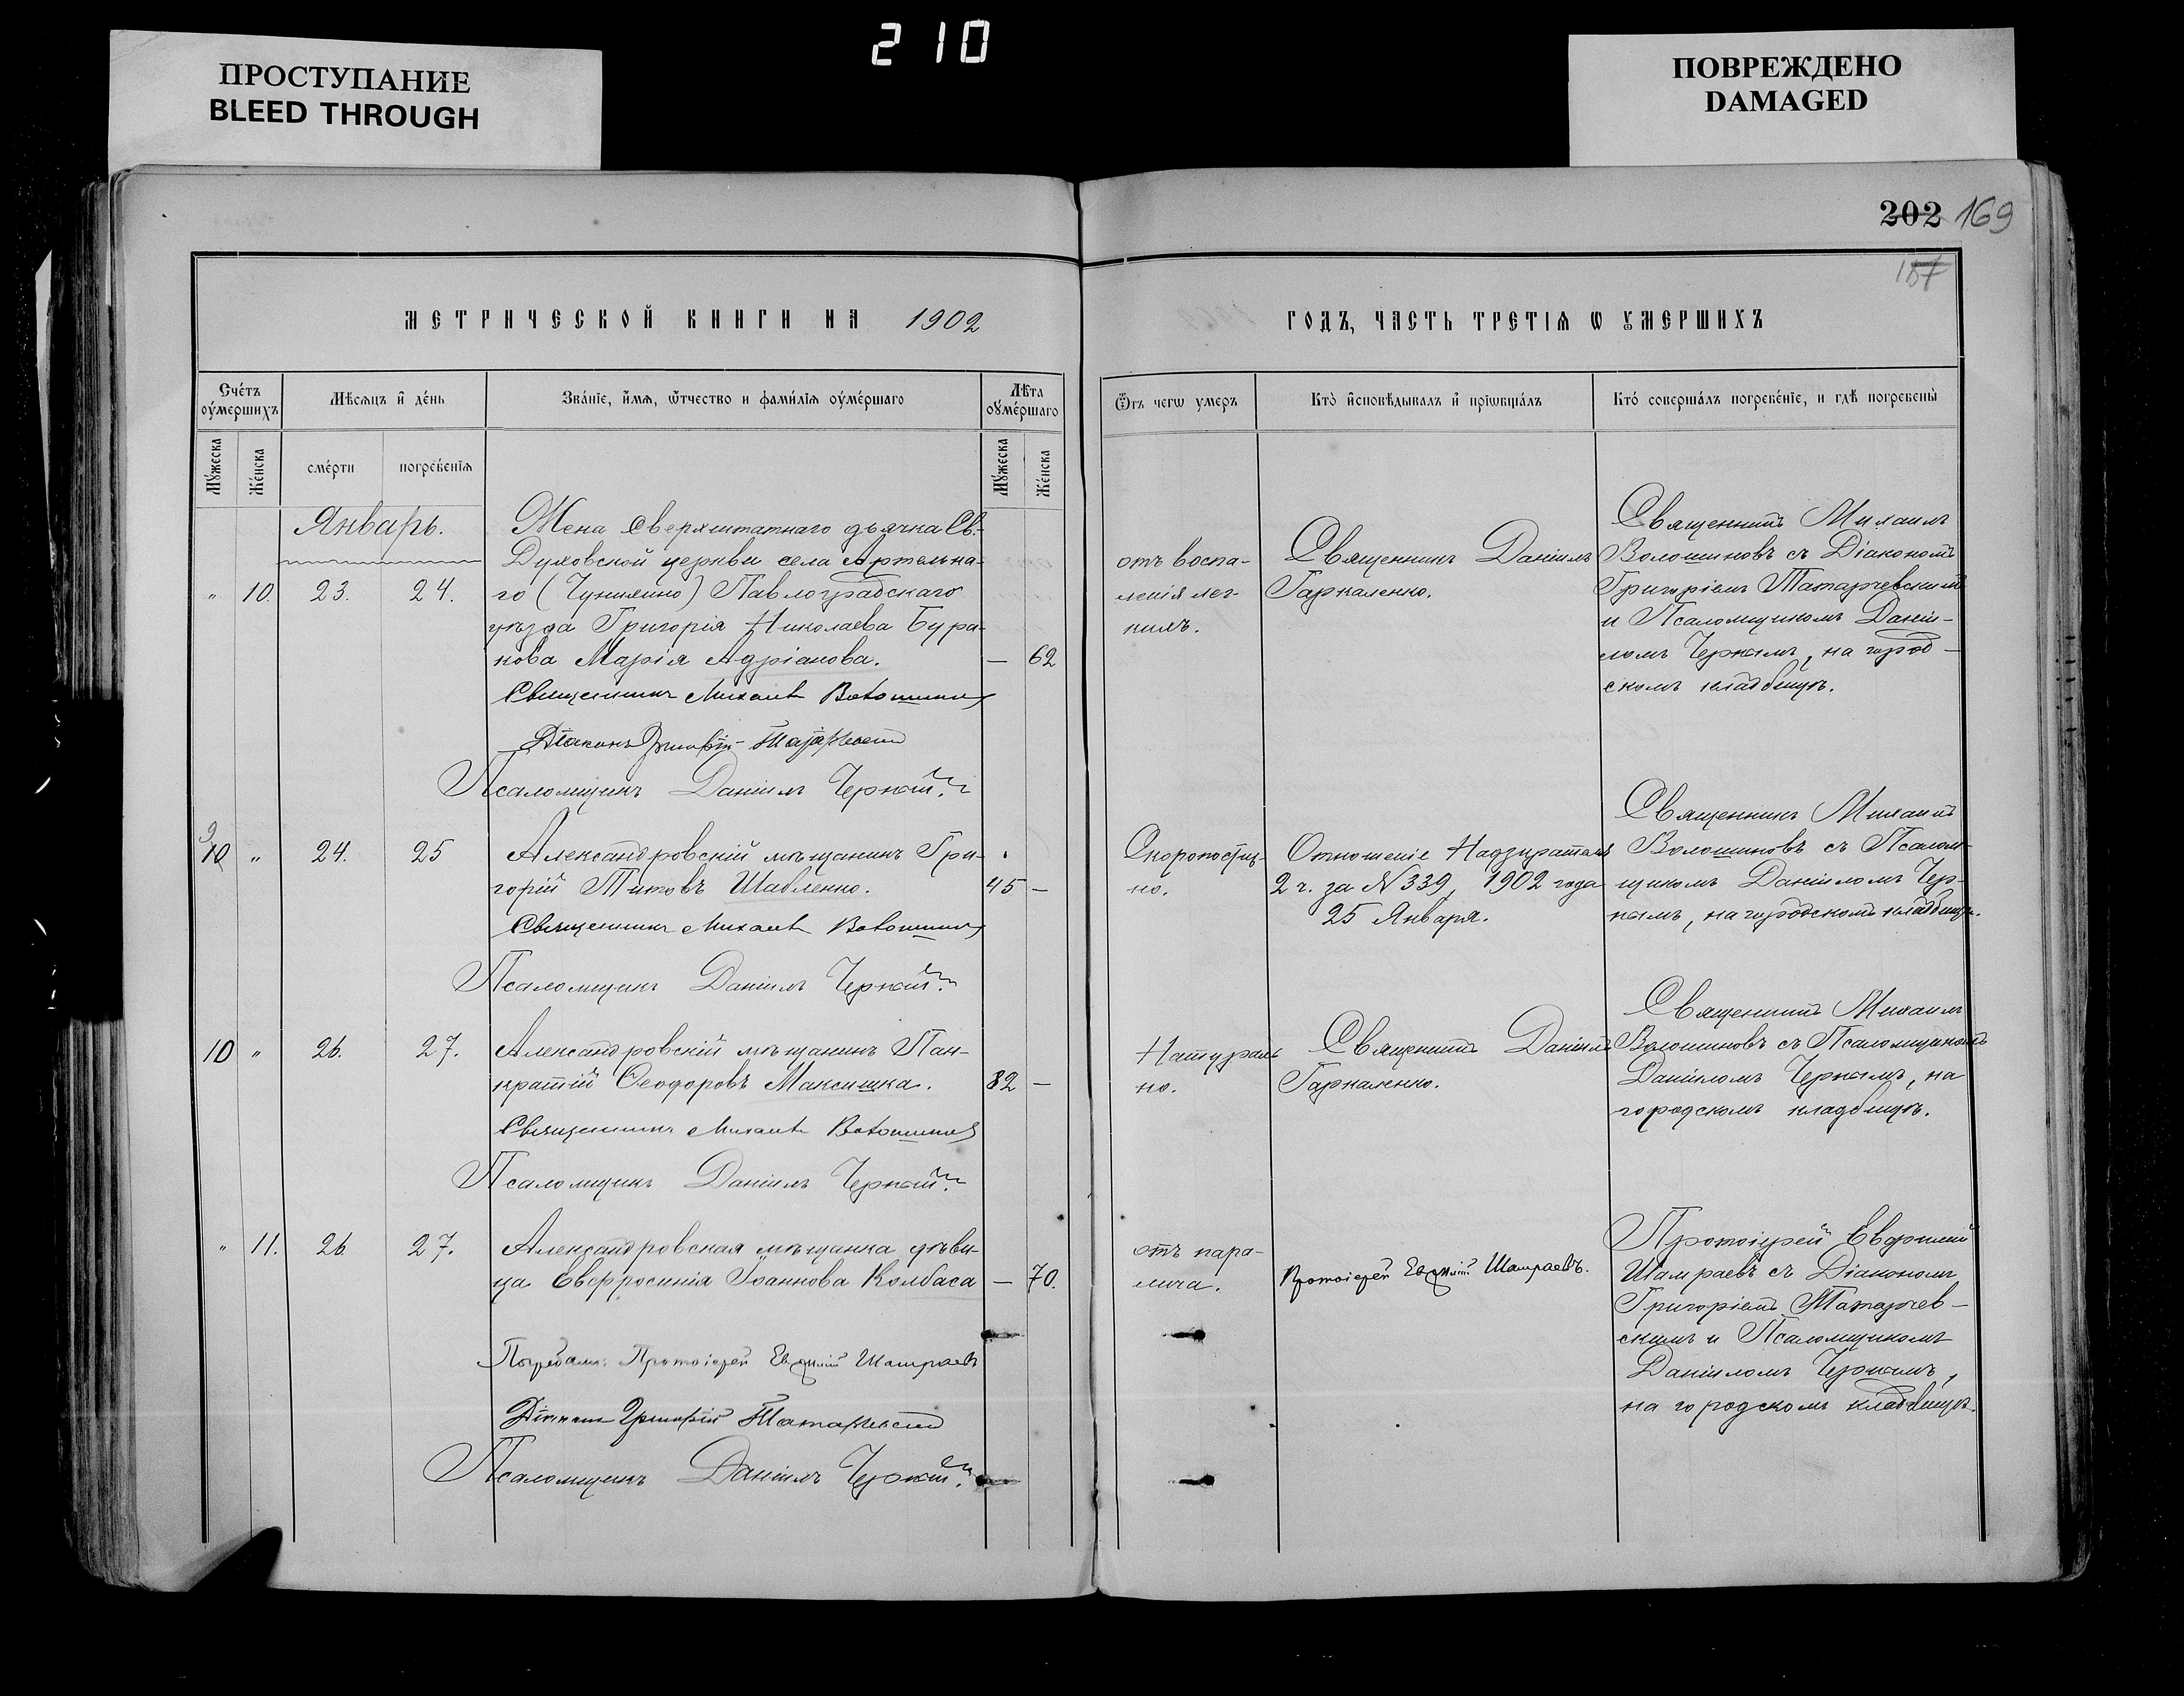 210
ПРОСТУПАНИЕ
BLEED THROUGH
ПОВРЕЖДЕНО
DAMAGED
202 169
187
МЕТРИЧЕСКОЙ КНИГИ НА 1902
ГОДЪ, ЧАСТЬ ТРЕТІѦ Ѡ ОУМЕРШИХЪ
Счётъ оумершихъ
Мѣсяцъ и день
Званіе, имя, ѿчество и фамилія оумершаго
Лѣта оумершаго
Ѿ чегѡ умеръ
Кто исповѣдывалъ и пріѡбщалъ
Кто совершалъ погребеніе, и гдѣ погребены
Мужеска
Женска
смерти
погребенія
Мужеска
Женска
Январь.
" 10. 23. 24.
Жена сверхштатнаго дьячка Св.
Духовской церкви села Артельна-
го (Чунишино) Павлоградскаго
уѣзда Григорія Николаева Бура-
кова Марія Адріанова. — 62
Священникъ Михаилъ Волошиновъ
Діаконъ Григорій Татарчевскій
Псаломщикъ Даніилъ Черкай.
отъ воспа-
ленія лег-
кихъ.
Священникъ Даніилъ
Гаркаленко.
Священникъ Михаилъ
Волошиновъ съ Діакономъ
Григоріемъ Татарчевскимъ
и Псаломщикомъ Даніи-
ломъ Черкамъ, на город-
скомъ кладбищѣ.
9
10 " 24. 25
Александровскій мѣщанинъ Гри-
горій Титовъ Шабленко. 45 —
Священникъ Михаилъ Волошиновъ
Псаломщикъ Даніилъ Черкай.
Скоропостиж-
но.
Отношеніе Надзирателя
2 ч. за N 339, 1902 года
25 Января.
Священникъ Михаилъ
Волошиновъ съ Псалом-
щикомъ Даніиломъ Чер-
камъ, на городскомъ кладбищѣ.
10 " 26. 27.
Александровскій мѣщанинъ Пан-
кратій Ѳеодоровъ Максишка. 82 —
Священникъ Михаилъ Волошиновъ
Псаломщикъ Даніилъ Черкай.
Натураль
но.
Священникъ Даніилъ
Гаркаленко.
Священникъ Михаилъ
Волошиновъ съ Псаломщикомъ
Даніиломъ Черкамъ, на
городскомъ кладбищѣ.
" 11. 26 27.
Александровская мѣщанка дѣви-
ца Евфросинія Іоаннова Колбаса — 70.
Погребали: Протоіерей Евѳимій Шамраевъ
Діаконъ Григорій Татарчевскій
Псаломщикъ Даніилъ Черкай.
отъ пара-
лича.
Протоіерей Евѳимій Шамраевъ.
Протоіерей Евфимій
Шамраевъ съ Діакономъ
Григоріемъ Татарчев-
скимъ и Псаломщикомъ
Даніиломъ Черкамъ,
на городскомъ кладбищѣ.